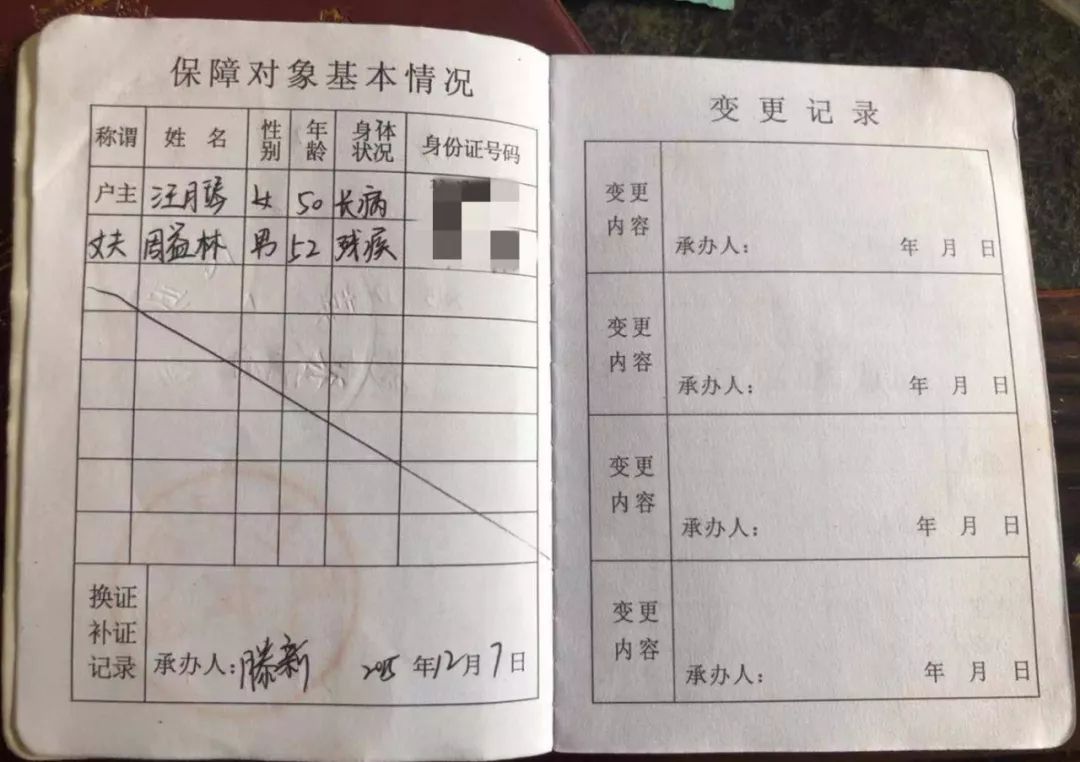 保障对象基本情况
称谓 姓名 性别 年龄 身体状况 身份证号码
户主 汪月琴 女 50 长病
丈夫 周益林 男 52 残疾
换证补证记录 承办人:滕新 2015年12月7日
变更记录
变更内容
承办人: 年 月 日
变更内容
承办人: 年 月 日
变更内容
承办人: 年 月 日
变更内容
承办人: 年 月 日